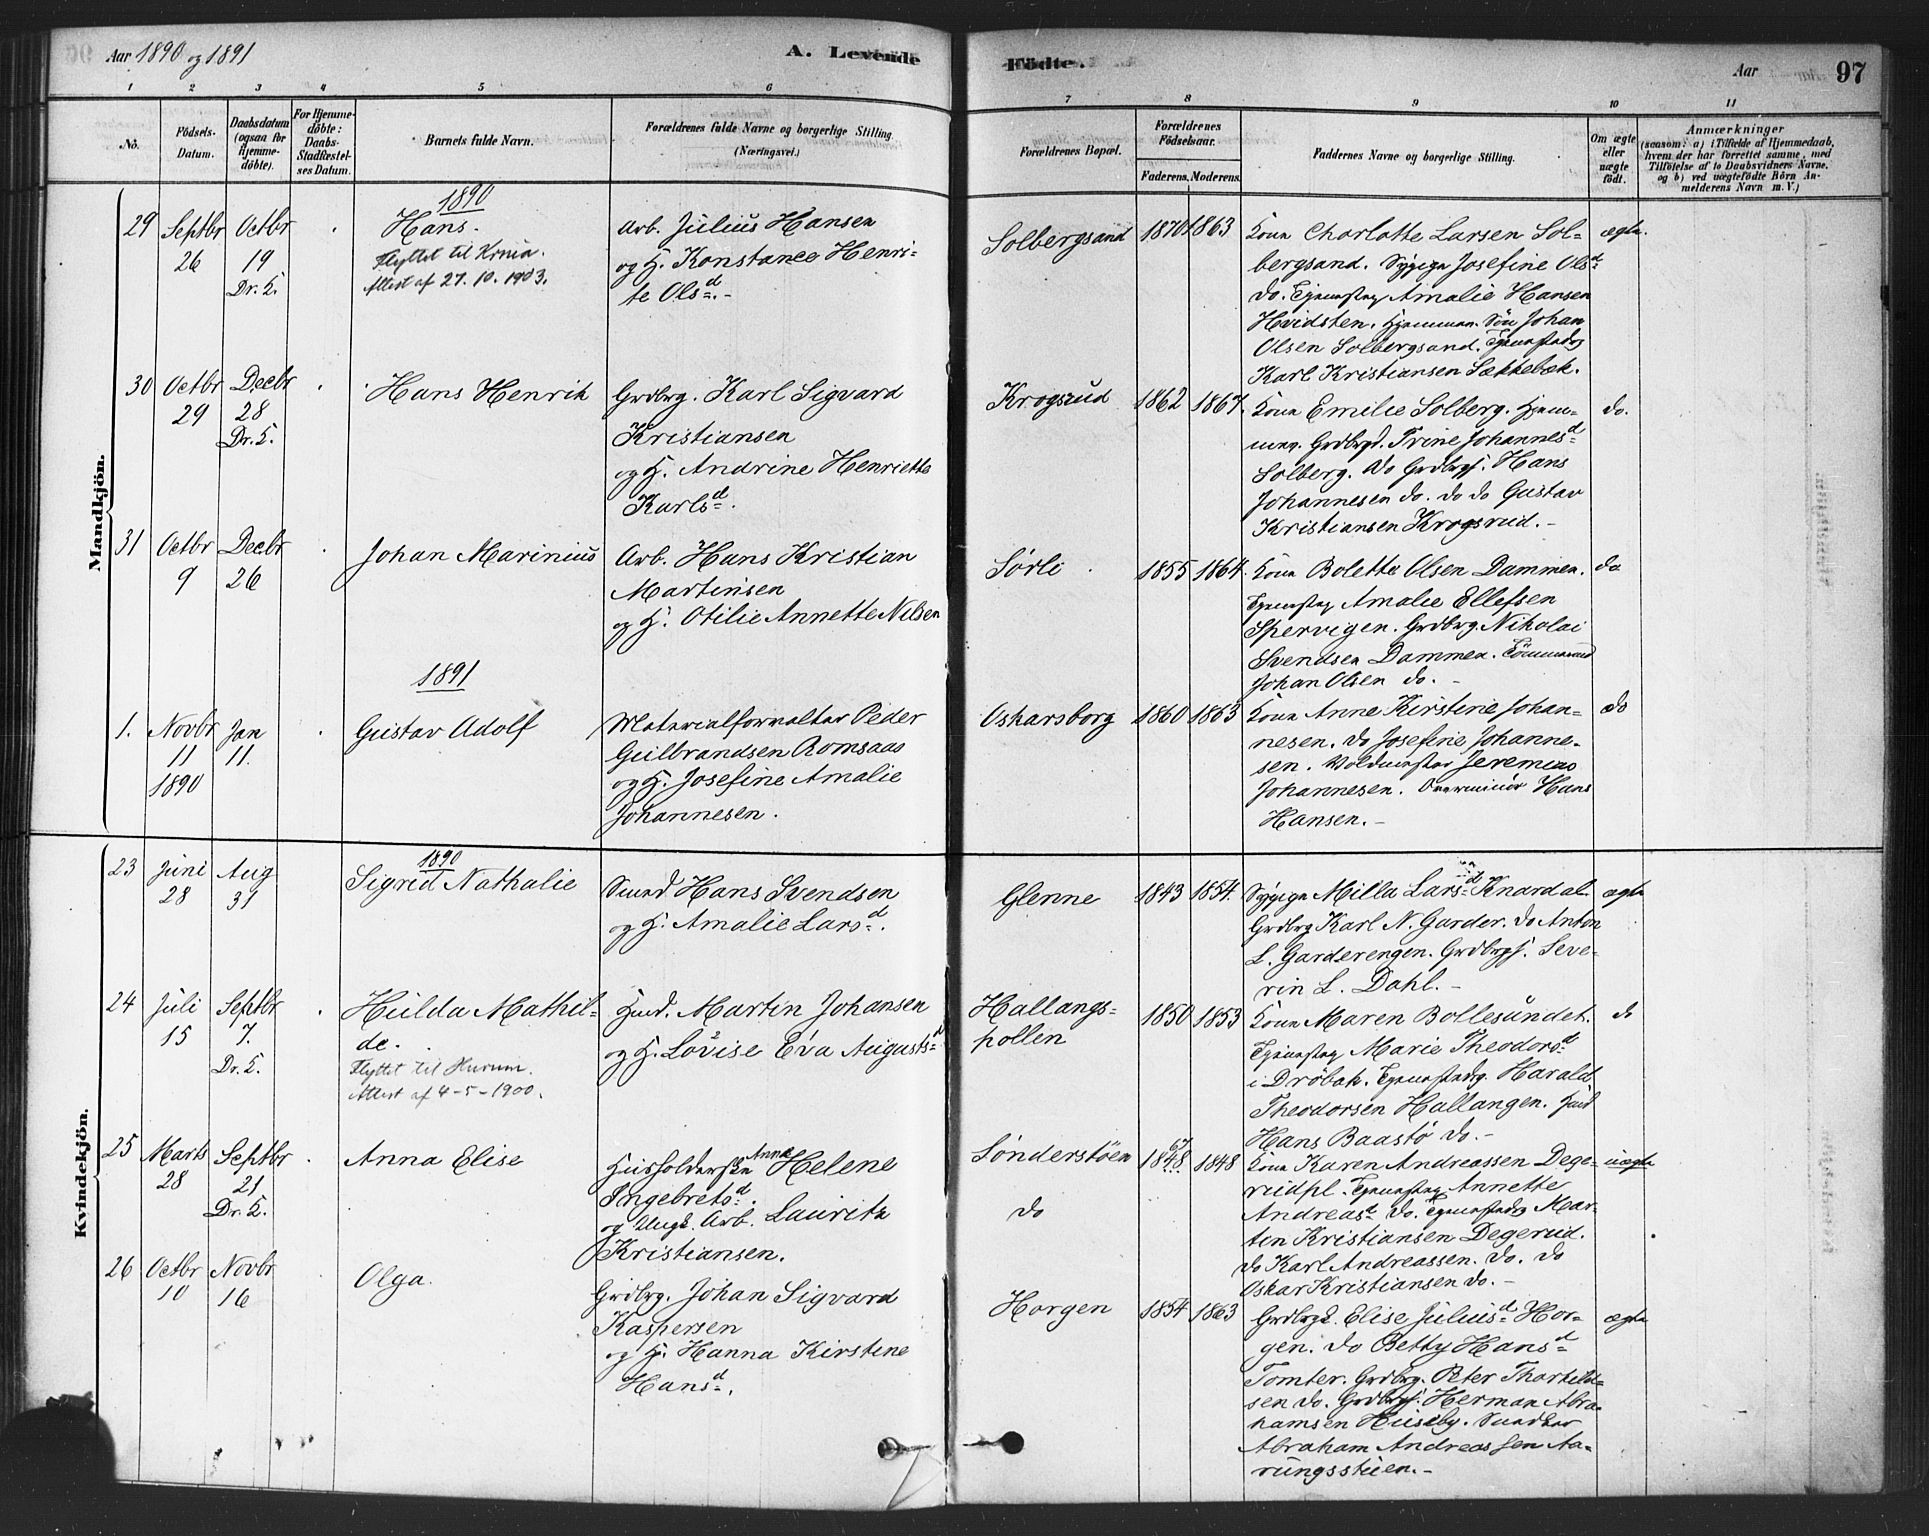 Aar 1890 og 1891
A. Levende
Födte.
Aar
97
1 2 3 4 5 6 7 8 9 10 11
No.
Födsels-
Datum.
Daabsdatum
(ogsaa for
Hjemme-
döbte).
For Hjemme-
döbte:
Daabs-
Stadfæstel-
ses Datum.
Barnets fulde Navn.
Forældrenes fulde Navne og borgerlige Stilling.
(Næringsvei.)
Forældrenes Bopæl.
Forældrenes
Födselsaar.
Faderens. Moderens.
Faddernes Navne og borgerlige Stilling.
Om ægte
eller
uægte
födt.
Anmærkninger
(saasom: a) i Tilfælde af Hjemmedaab,
hvem der har forrettet samme, med
Tilföielse af to Daabsvidners Navne,
og b) ved uægtefödte Börn An-
melderens Navn m. V.)
Mandkjön.
1890
29
Septbr
26
Octbr
19
Dr. K.
Hans.
Flyttet til Krnia.
Attest af 27.10.1903.
Arb. Julius Hansen
og H. Konstance Henri-
te Olsd.-
Solbergsand
1870 1863
Kona Charlotte Larsen Sol-
bergsand. Sypige Josefine Olsd
do. Tjenestpg Amalie Hansen
Hvidsten. Hjemmev. Søn Johan
Olsen Solbergsand. Tjenestedrg
Karl Kristiansen Sækkebæk.
ægte.
30
Octbr
29
Decbr
28
Dr. K.
Hans Henrik
Grdbrg. Karl Sigvard
Kristiansen
og H. Andrine Henriette
Karlsd.
Krogsrud
1862 1867.
Kona Emilie Solberg. Hjem-
mev. Grdbrgd. Trine Johannesd
Solberg. do Grdbrgs. Hans
Johannesen do. do do Gustav
Kristiansen Krogsrud.-
do.
31
Octbr
9
Decbr
26
Johan Marinius
Arb. Hans Kristian
Martinsen
og H. Otilie Annette Nilsen
Sørli
1855 1864.
Kona Bolette Olsen Dammen.
Tjenestpg Amalie Ellefsen
Spervigen. Grdbrg. Nikolai
Svendsen Dammen. Tømmermd
Johan Olsen do.-
do
1891
1.
Novbr
11
1890
Jan
11.
Gustav Adolf
Materialforvalter Peder
Gulbrandsen Romsaas
og H. Josefine Amalie
Johannesen.
Oskarsborg
1860 1863
Kona Anne Kirstine Johan-
nesen. do Josefine Johanne-
sen. Voldmester Jeremias
Johannesen. Overminör Hans
Hansen.-
do
Kvindekjön.
1890
23
Juni
28
Aug
31
Sigrid Nathalie
Smed Hans Svendsen
og H. Amalie Larsd.
Glenne
1843 1854.
Sypige Milla Larsd Knardal
Grdbrg Karl N. Garder. do Anton
L. Garderengen. Grdbrgs. Seve-
rin L. Dahl.-
ægte
24
Juli
15
Septbr
7.
Dr. K.
Hulda Mathil-
de.
Flyttet til Hurum.
Attest af 4-5-1900.
Husd. Martin Johansen
og H. Lovise Eva Augustsd
Hallangs-
pollen
1850 1853
Kona Maren Bollesundet.
Tjenestpg Marie Theodorsd
i Drøbak. Tjenestedrg. Harald
Theodorsen Hallangen. Husd
Hans Baastø do.-
do
25
Marts
28
Septbr
21
Dr. K.
Anna Elise
Husholderske Anna Helene
Ingebretsd.
og Ungk. Arb. Lauritz
Kristiansen.
Sønderstøen
do
67
1848. 1848
Kona Karen Andreassen Dege-
rudpl. Tjenestpg Annette
Andreasd do. Tjenestedrg Mar-
tin Kristiansen Degerud.
do Karl Andreassen. do. do
Oskar Kristiansen do.-
uægte
26
Octbr
10
Novbr
16
Olga.
Grdbrg. Johan Sigvard
Kaspersen
og H. Hanna Kirstine
Hansd.
Horgen
1854 1863
Grdbrgk. Elise Juliusd Hor-
gen. do Betty Hansd
Tomter. Grdbrg. Peter Thorkild-
sen do. Grdbrgs. Herman Abra-
hamsen Huseby.
Abraham Andreassen Aa-
rungsstuen.-
ægte